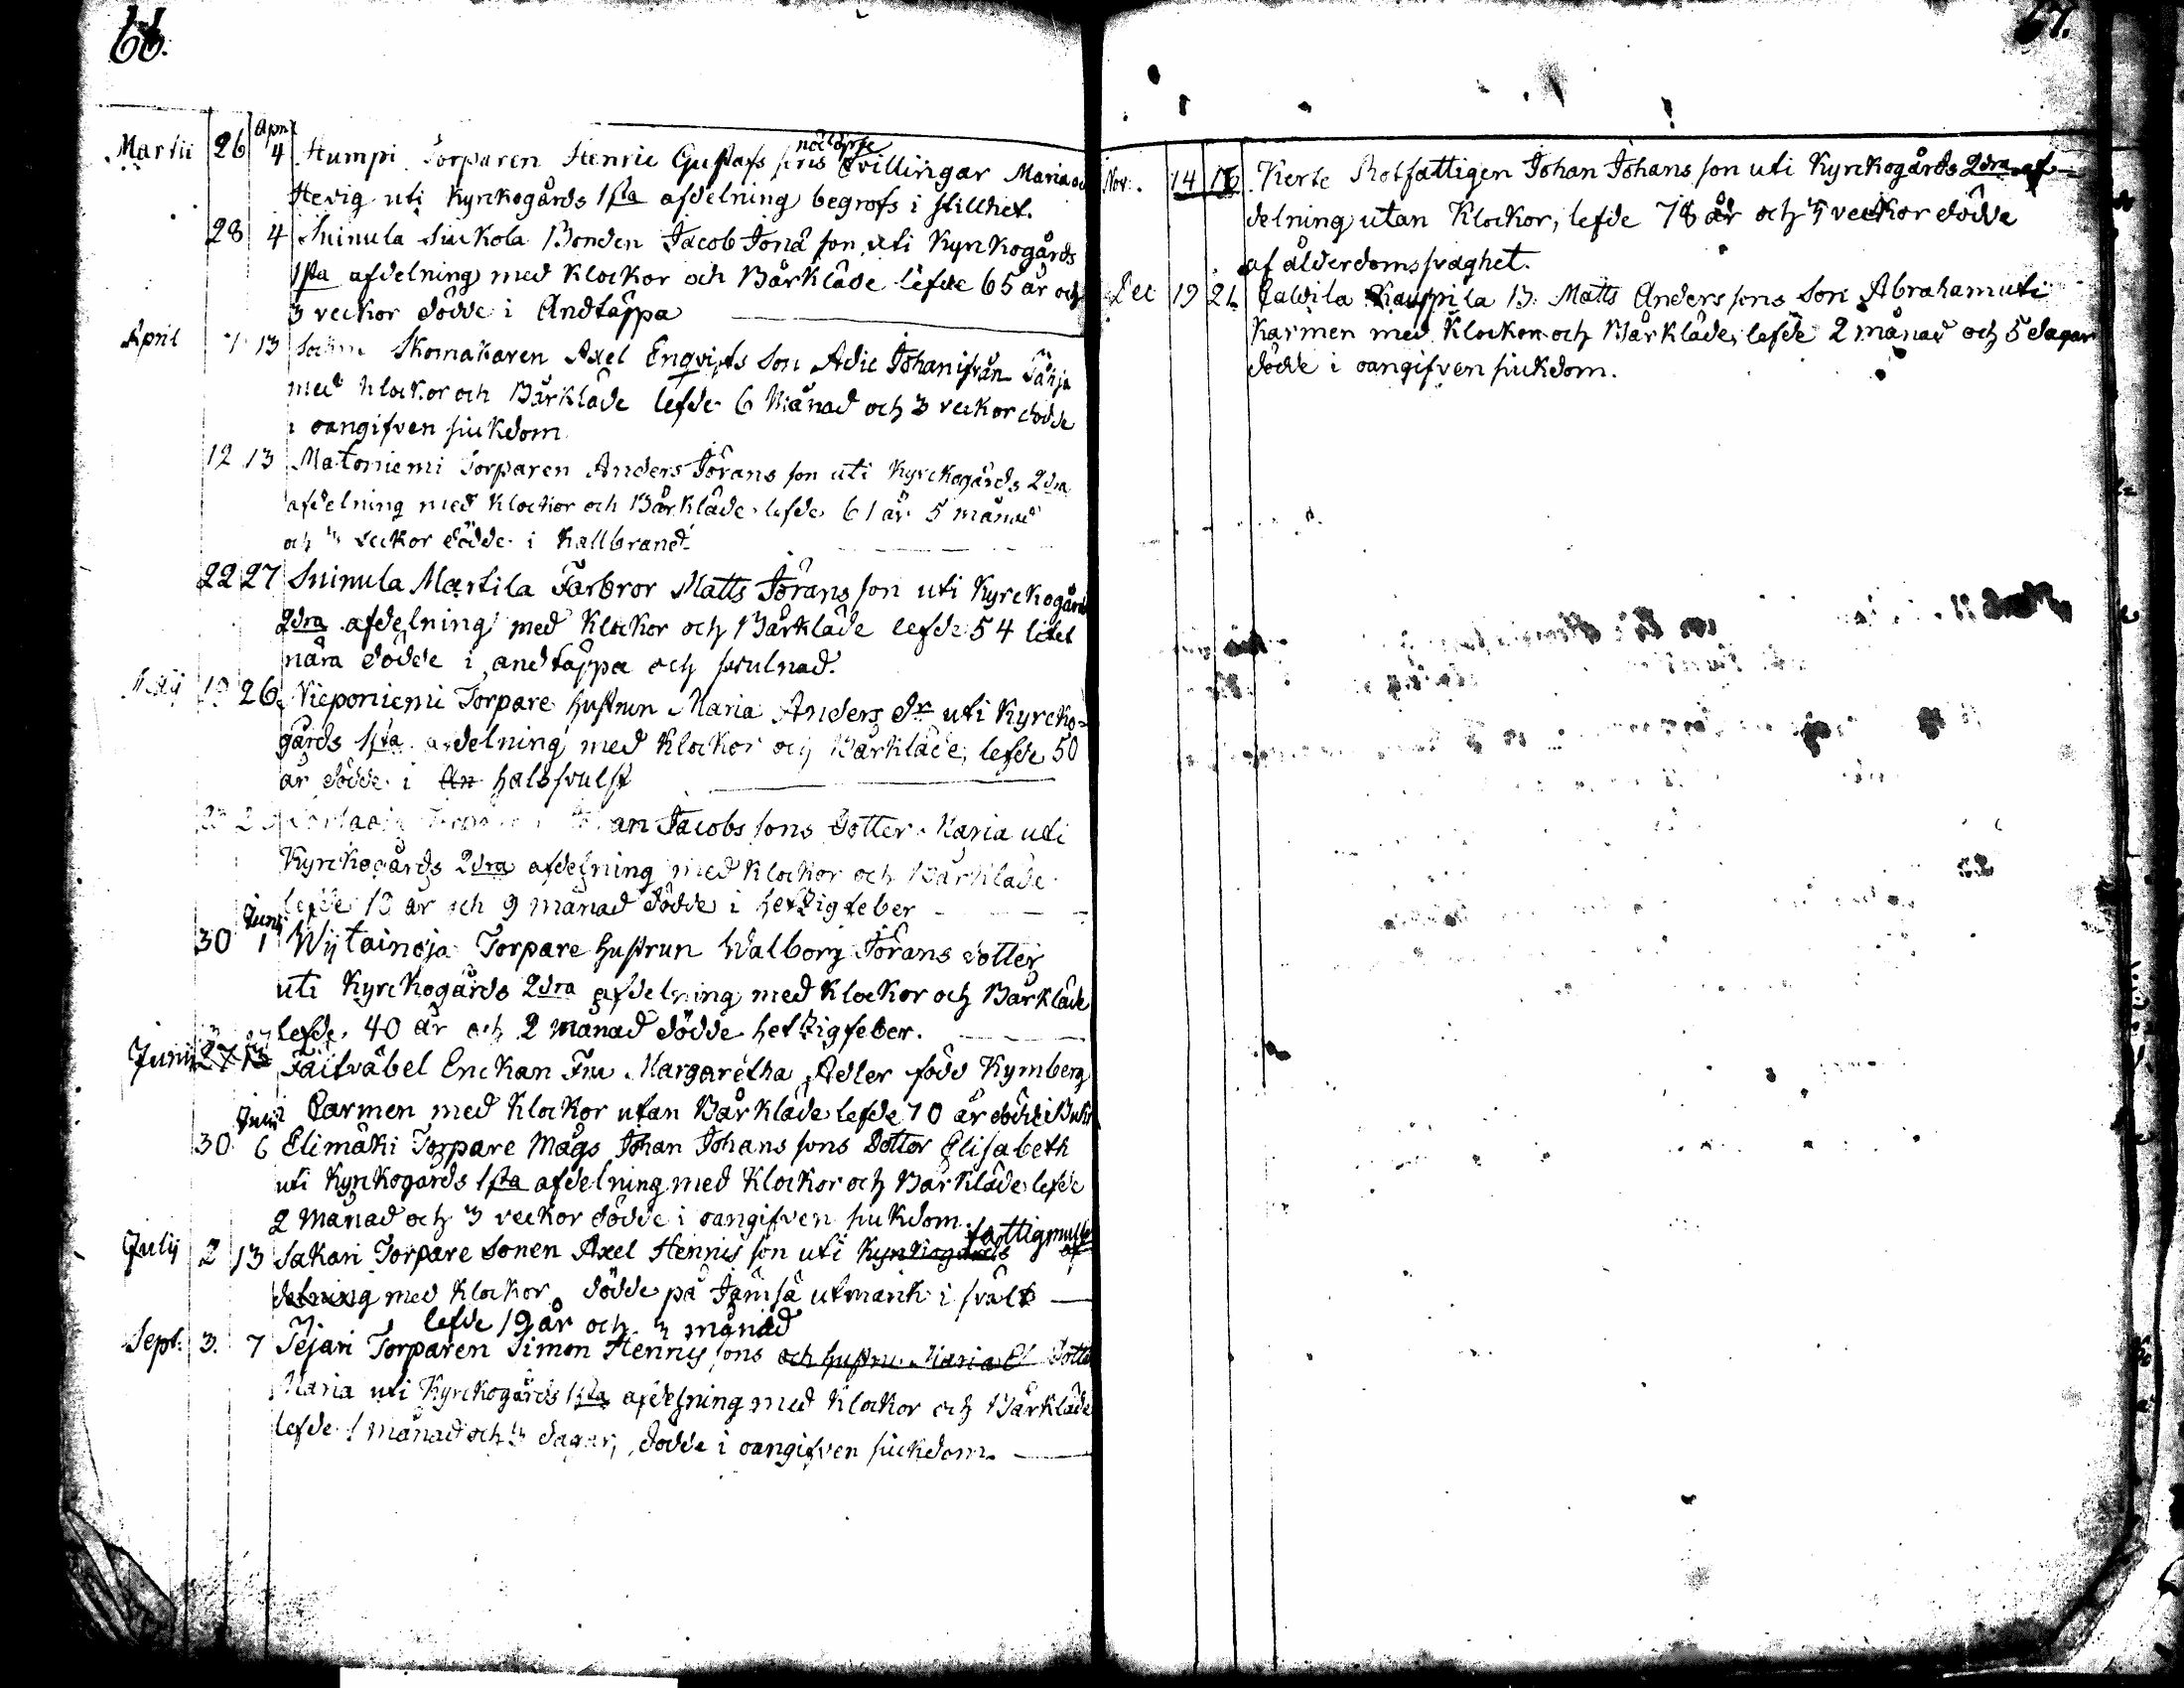 66.
Martii 26 April 4 Humpi Torparen Henric Gustafs sons nöddöpte Tvillingar Maria och
Hevig uti Kyrckogårds 1sta afdelning begrofs i stillhet.
28 4 Suinula Siukola Bonden Jacob Jona son uti Kyrckogårds
1sta afdelning med Klockor och Bårkläde lefde 65 år och
3 veckor dödde i Andtäppa
April 7 13 Skomakaren Axel Enqvists Son Adic Johan ifrån
med Klockor och Bårkläde lefde 6 Månad och 3 veckor dödde
i oangifven siukdom
12 13 Matoniemi Torparen Anders Jörans son uti Kyrckogårds 2dra
afdelning med Klockor och Bårkläde lefde 61 år 5 månad
och veckor dödde i Kallbrand
22 27 Suinula Martila Farbror Matts Jörans son uti Kyrckogårds
2dra afdelning med Klockor och Bårkläde lefde 54 litet
nära dödde i andtäppa och svulnad.
Maij 26 Nieponiemi Torpare hustrun Maria Anders dr uti Kyrcko-
gårds 1sta afdelning med Klockor och Bårkläde, lefde 50
år dödde i An halssvulst
an Jacobs sons Dotter Maria uti
Kyrckogårds 2dra afdelning med Klockor och Bårkläde
lefde 18 år och 9 månad dödde i hetzig feber
30 Junii 1 Wytainoja Torpare hustrun Walborg Jörans dotter
uti Kyrckogårds 2dra afdelning med Klockor och Bårkläde
lefde 40 år och 2 månad dödde hetzig feber.
Junii Fältväbel Enckan Fru Margaretha Adler född Kymberg
Carmen med Klockor utan Bårkläde lefde 70 år dödde i
30 Julii 6 Elimäki Torpare Mågs Johan Johans sons Dotter Elisabeth
uti Kyrckogårds 1sta afdelning med Klockor och Bårkläde lefde
2 Månad och 3 veckor dödde i oangifven siukdom.
Julij 2 13 Sakari Torpare Sonen Axel Henrics son uti Kyrckogårds fattigmulle af
delning med Klockor dödde på Jämsä utmark i svält
lefde 19 år och 3 månad
Sept. 3. 7 Tejari Torparen Simon Henrics sons och hustru Maria Dotter
Maria uti Kyrckogårds 1sta afdelning med Klockor och Bårkläde
lefde 1 månad och dagar, dödde i oangifven siukdom.
67.
Nov. 14 16 Kerte Rotfattigen Johan Johans son uti Kyrckogårds 2dra af-
delning utan Klockor, lefde 78 år och 3 veckor dödde
af ålderdoms svaghet.
Dec 19 21 Caldila Kauppila B. Matts Anders sons Son Abraham uti
Karmen med Klockor och Bårkläde, lefde 2 månad och 5 dagar
dödde i oangifven siukdom.